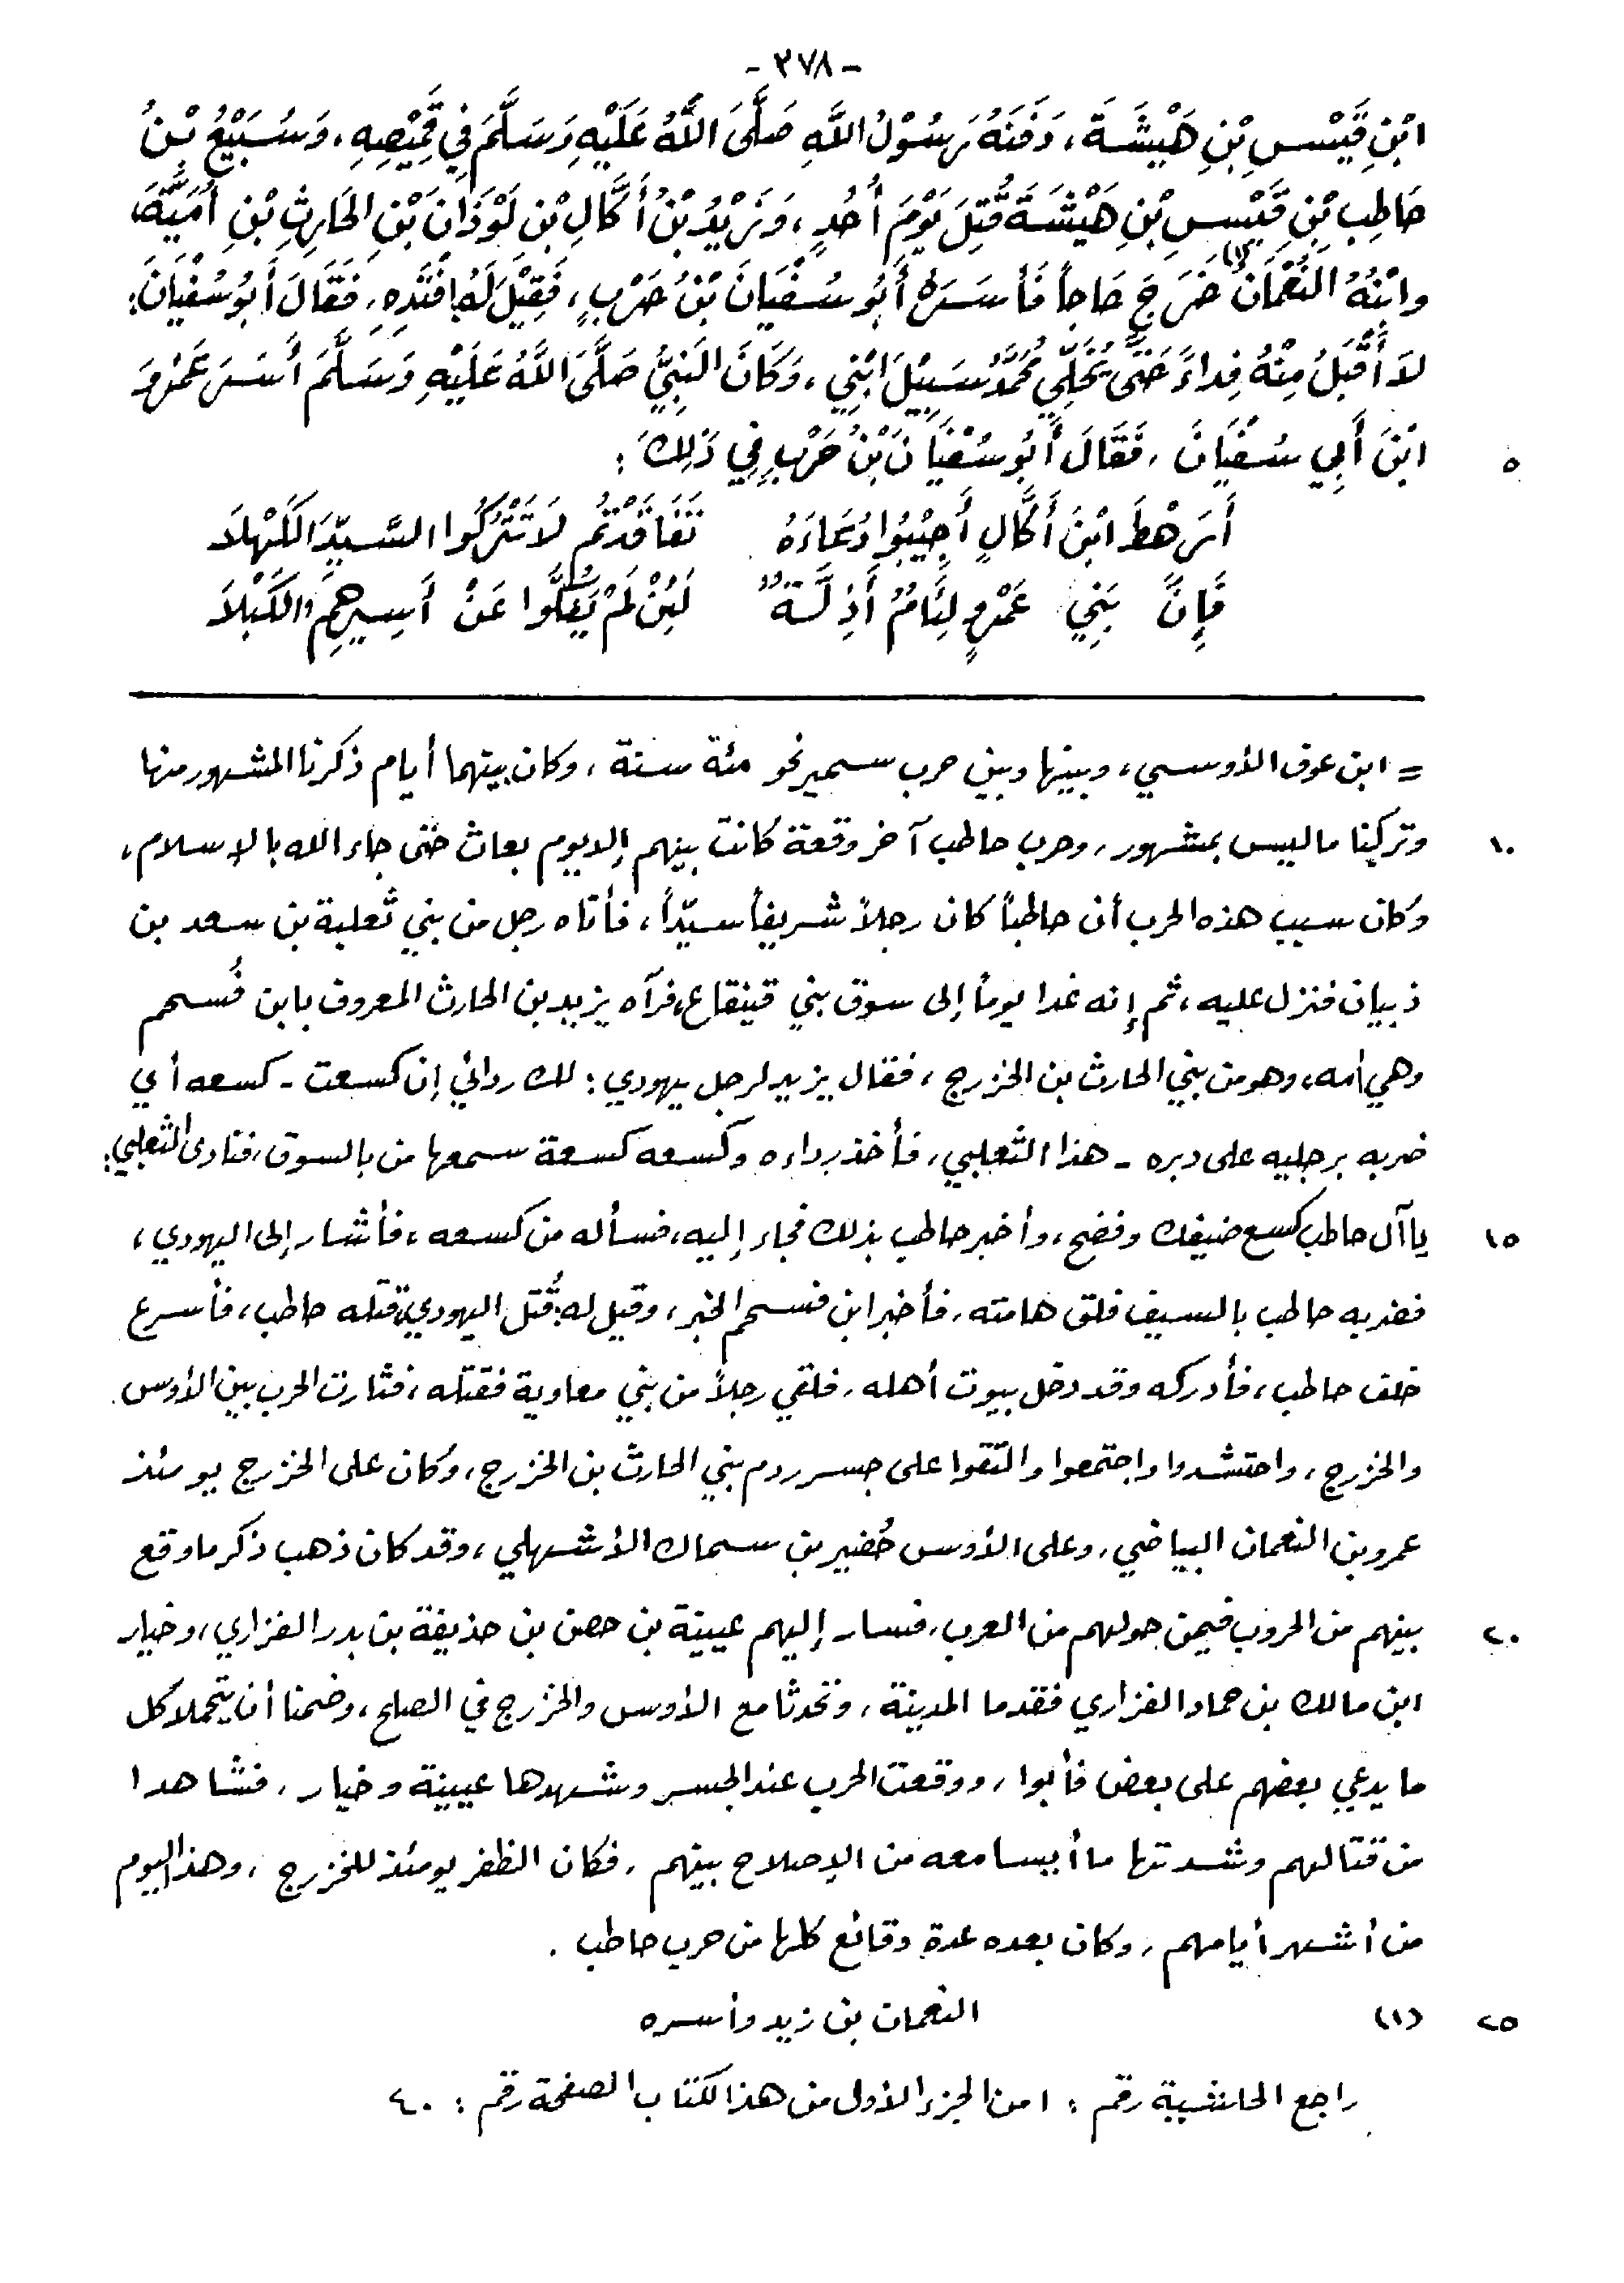 - ٣٧٨ -
ابْنِ قَيْسِ بْنِ هَيْشَةَ، دَفَنَهُ رَسُوْلُ اللَّهِ صَلَّىَ اللَّهُ عَلَيْهِ وَسَلَّمَ فِي قَمِيْصِهِ، وَسُبَيْعُ بْنُ
حَاطِبِ بْنِ قَيْسِ بْنِ هَيْشَةَ قُتِلَ يَوْمَ أُحُدٍ، وَزَيْدُ بْنُ أَكَّالِ بْنِ لَوْذَانَ بْنِ الحَارِثِ بْنِ أُمَيَّةَ،
وابْنُهُ النُّعْمَانُ (١) خَرَجَ حَاجاً فَأَسَرَهُ أَبُو سُفْيَانَ بْنُ حَرْبٍ، فَقِيْلَ لَهُ افْتَدِهِ، فَقَالَ أَبُو سُفْيَانَ:
لاَ أَقْبَلُ مِنْهُ فِداءً حَتَّى يُخَلِّي مُحَمَّدٌ سَبِيْلَ ابْنِي، وَكَانَ النَّبِيُّ صَلَّىَ اللَّهُ عَلَيْهِ وَسَلَّمَ أَسَرَ عَمْرَو
ابْنَ أَبِي سُفْيَانَ، فَقَالَ أَبُو سُفْيَانَ بْنُ حَرْبٍ فِي ذَلِكَ: ٥
أَرَهْطَ ابْنَ أَكَّالٍ أَجِيْبُوا دُعَاءَهُ تَفَاقَدْتُمُ لاَ تَتْرُكُوا السَّيِّدَ الكَهْلاَ
فَإِنَّ بَنِي عَمْرٍو لِئَامٌ أَذِلَّةٌ لَئِنْ لَمْ يَفُكُّوا عَنْ أَسِيرِهِمُ الكَبْلاَ
= ابن عوف الأوسي، وبينها وبين حرب سمير نحو مئة سنة، وكان بينهما أيام ذكرنا المشهور منها
وتركنا ما ليس بمشهور، وحرب حاطب آخر وقعة كانت بينهم إلا يوم بعاث حتى جاء الله بالإسلام، ١٠
وكان سبب هذه الحرب أن حاطباً كان رجلاً شريفاً سيّداً، فأتاه رجل من بني ثعلبة بن سعد بن
ذبيان فنزل عليه، ثم إنه غدا يوماً إلى سوق بني قينقاع، فرآه يزيد بن الحارث المعروف بابن فُسحم
وهي أمه، وهو من بني الحارث بن الخزرج، فقال يزيد لرجل يهودي: لك ردائي إن كسعت - كسعه أي
ضربه برجليه على دبره - هذا الثعلبي، فأخذ رداءه وكسعه كسعة سمعها من بالسوق، فنادى الثعلبي:
يا آل حاطب كسع ضيفك وفضح، وأخبر حاطب بذلك فجاء إليه، فسأله من كسعه، فأشار إلى اليهودي، ١٥
فضربه حاطب بالسيف فلق هامته، فأخبر ابن فسحم الخبر، وقيل له: قُتل اليهودي، قتله حاطب، فأسرع
خلف حاطب، فأدركه وقد دخل بيوت أهله، فلقي رجلاً من بني معاوية فقتله، فثارت الحرب بين الأوس
والخزرج، واحتشدوا واجتمعوا والتقوا على جسر ردم بني الحارث بن الخزرج، وكان على الخزرج يومئذ
عمرو بن النعمان البياضي، وعلى الأوس حُضير بن سماك الأشهلي، وقد كان ذهب ذكر ما وقع
بينهم من الحروب فيمن حولهم من العرب، فسار إليهم عيينة بن حصن بن حذيفة بن بدر الفزاري، وخيار ٢٠
ابن مالك بن حماد الفزاري فقدما المدينة، وتحدثا مع الأوس والخزرج في الصلح، وضمنا أن يتحملا كل
ما يدعي بعضهم على بعض فأبوا، ووقعت الحرب عند الجسر وشهدها عيينة وخيار، فشاهدا
من قتالهم وشدتها ما أيسا معه من الإصلاح بينهم، فكان الظفر يومئذ للخزرج، وهذا اليوم
من أشهر أيامهم، وكان بعده عدة وقائع كلها من حرب حاطب.
(١) النعمان بن زيد وأسره ٢٥
راجع الحاشية رقم: ١ من الجزء الأول من هذا الكتاب الصفحة رقم: ٤٠